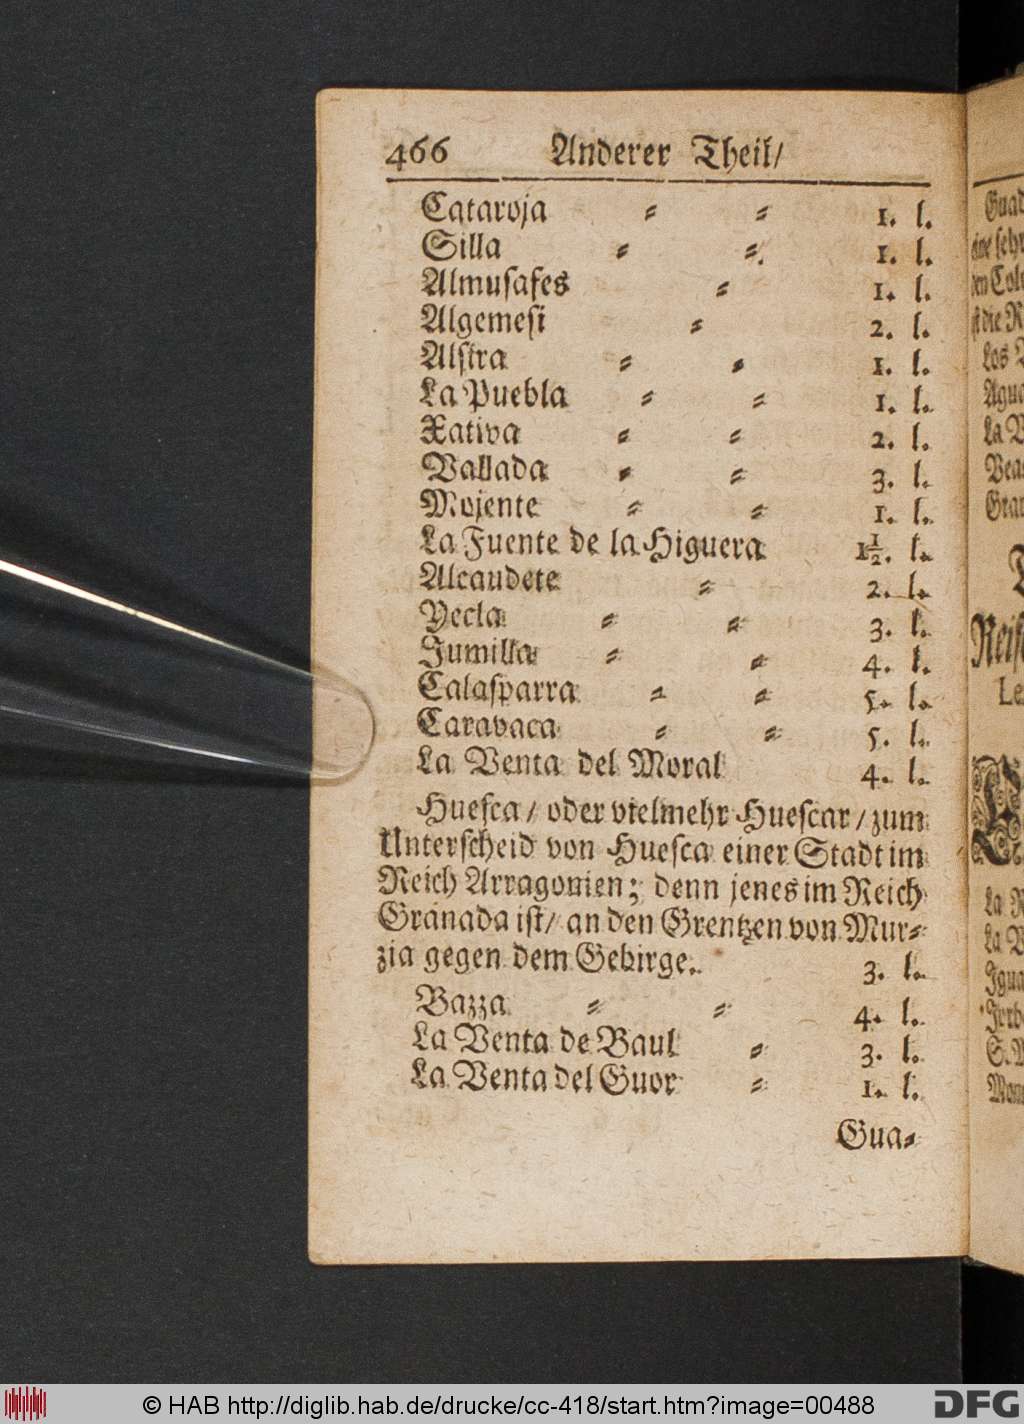 466 Anderer Theil/
Cataroja ⸗ ⸗ 1. l.
Silla ⸗ ⸗. 1. l.
Almusafes ⸗ 1. l.
Algemesi ⸗ 2. l.
Alsira ⸗ ⸗ 1. l.
La Puebla ⸗ ⸗ 1. l.
Xativa ⸗ ⸗ 2. l.
Vallada ⸗ ⸗ 3. l.
Mojente ⸗ ⸗ 1. l.
La Fuente de la Higuera 1½. l.
Alcaudete ⸗ 2. l.
Yecla ⸗ ⸗ 3. l.
Jumilla ⸗ ⸗ 4. l.
Calasparra ⸗ ⸗ 5. l.
Caravaca ⸗ ⸗ 5. l.
La Venta del Moral 4. l.
Huesca/ oder vielmehr Huescar/ zum
Unterscheid von Huesca einer Stadt im
Reich Arragonien; denn jenes im Reich
Granada ist/ an den Grentzen von Mur⸗
zia gegen dem Gebirge. 3. l.
Bazza ⸗ ⸗ 4. l.
La Venta de Baul ⸗ 3. l.
La Venta del Guor ⸗ 1. l.
Gua⸗
© HAB http://diglib.hab.de/drucke/cc-418/start.htm?image=00488
DFG